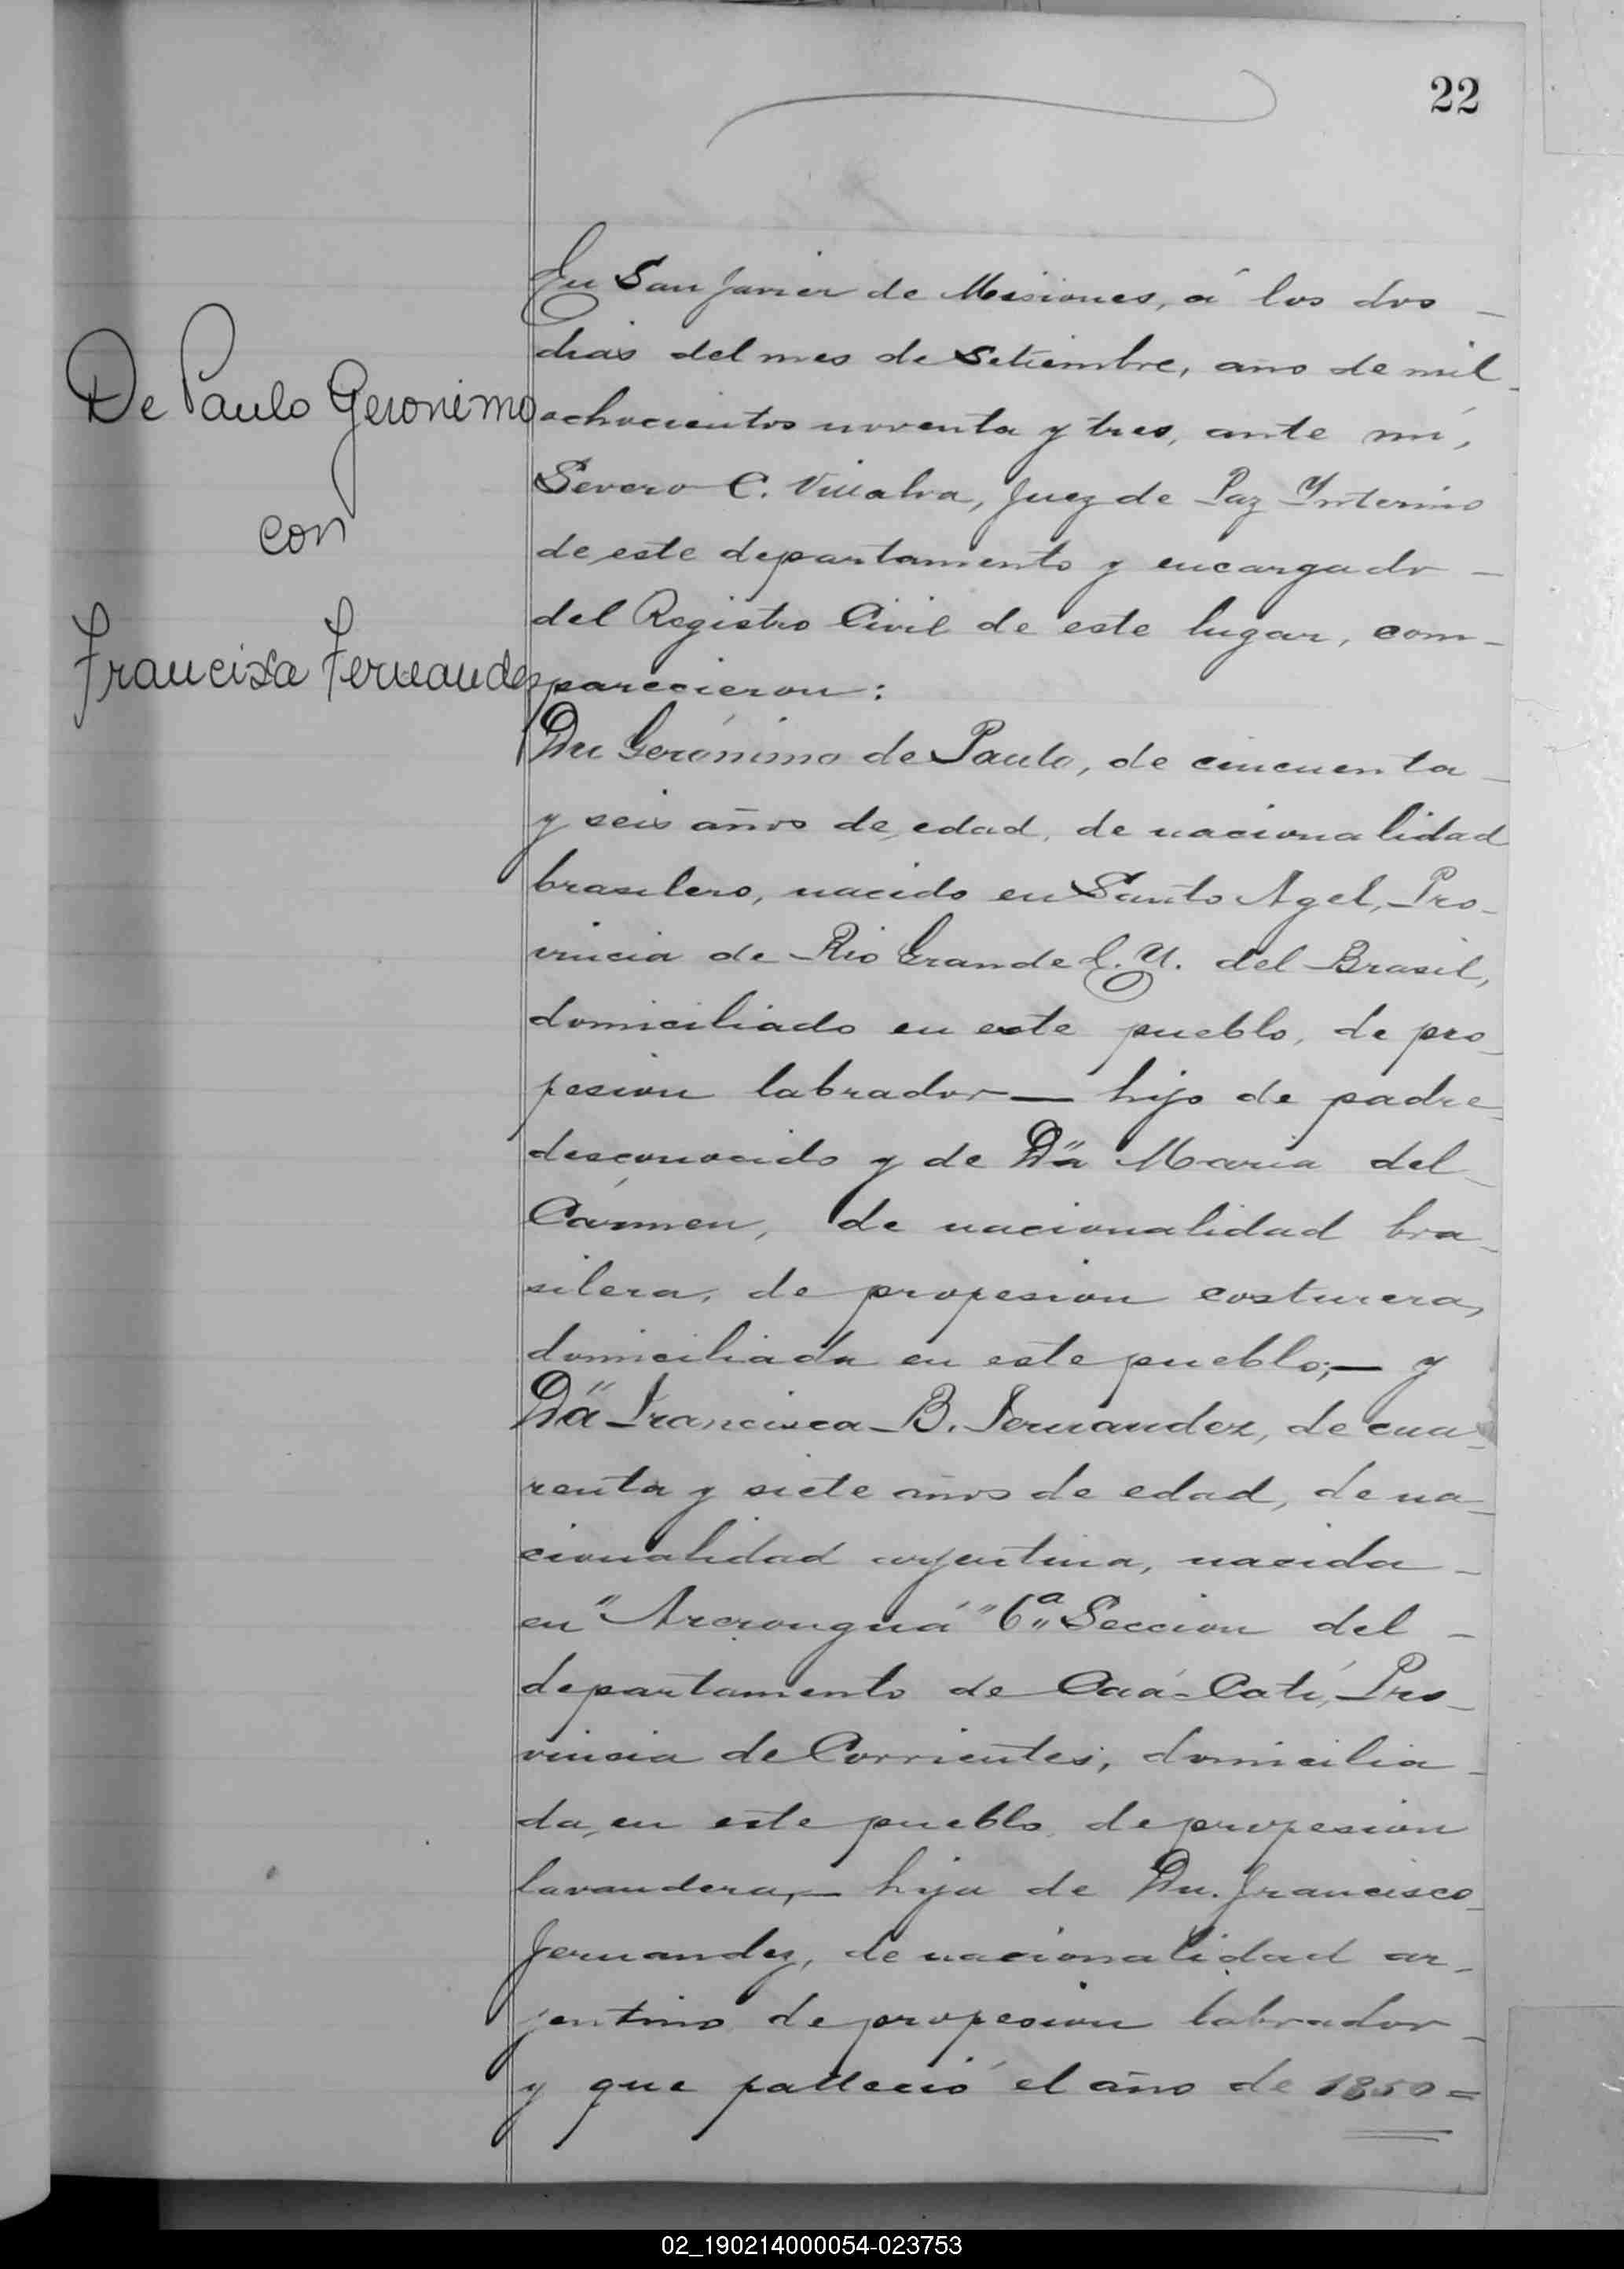 22
De Paulo Geronimo
con
Francisca Fernandez
En San Javier de Misiones, á los dos
dias del mes de Setiembre, año de mil
ochocientos noventa y tres, ante mí,
Severo C. Villalva, Juez de Paz Interino
de este departamento y encargado
del Registro Civil de este lugar, com-
parecieron:
Dn Gerónimo de Paulo, de cincuenta
y seis años de edad, de nacionalidad
brasilero, nacido en Santo Agel, Pro-
vincia de Rio Grande E. U. del Brasil,
domiciliado en este pueblo, de pro-
fesion labrador — hijo de padre
desconocido y de Da Maria del
Cármen, de nacionalidad bra-
silera, de profesion costurera,
domiciliada en este pueblo; — y
Da Francisca B. Fernandez, de cua-
renta y siete años de edad, de na-
cionalidad arjentina, nacida
en "" 6a Seccion del
departamento de Caá-Catí, Pro-
vincia de Corrientes, domicilia-
da, en este pueblo, de profesion
lavandera, — hija de Dn. Francisco
Fernandez, de nacionalidad ar-
jentino de profesion labrador
y que falleció el año de 1850 =
02_190214000054-023753